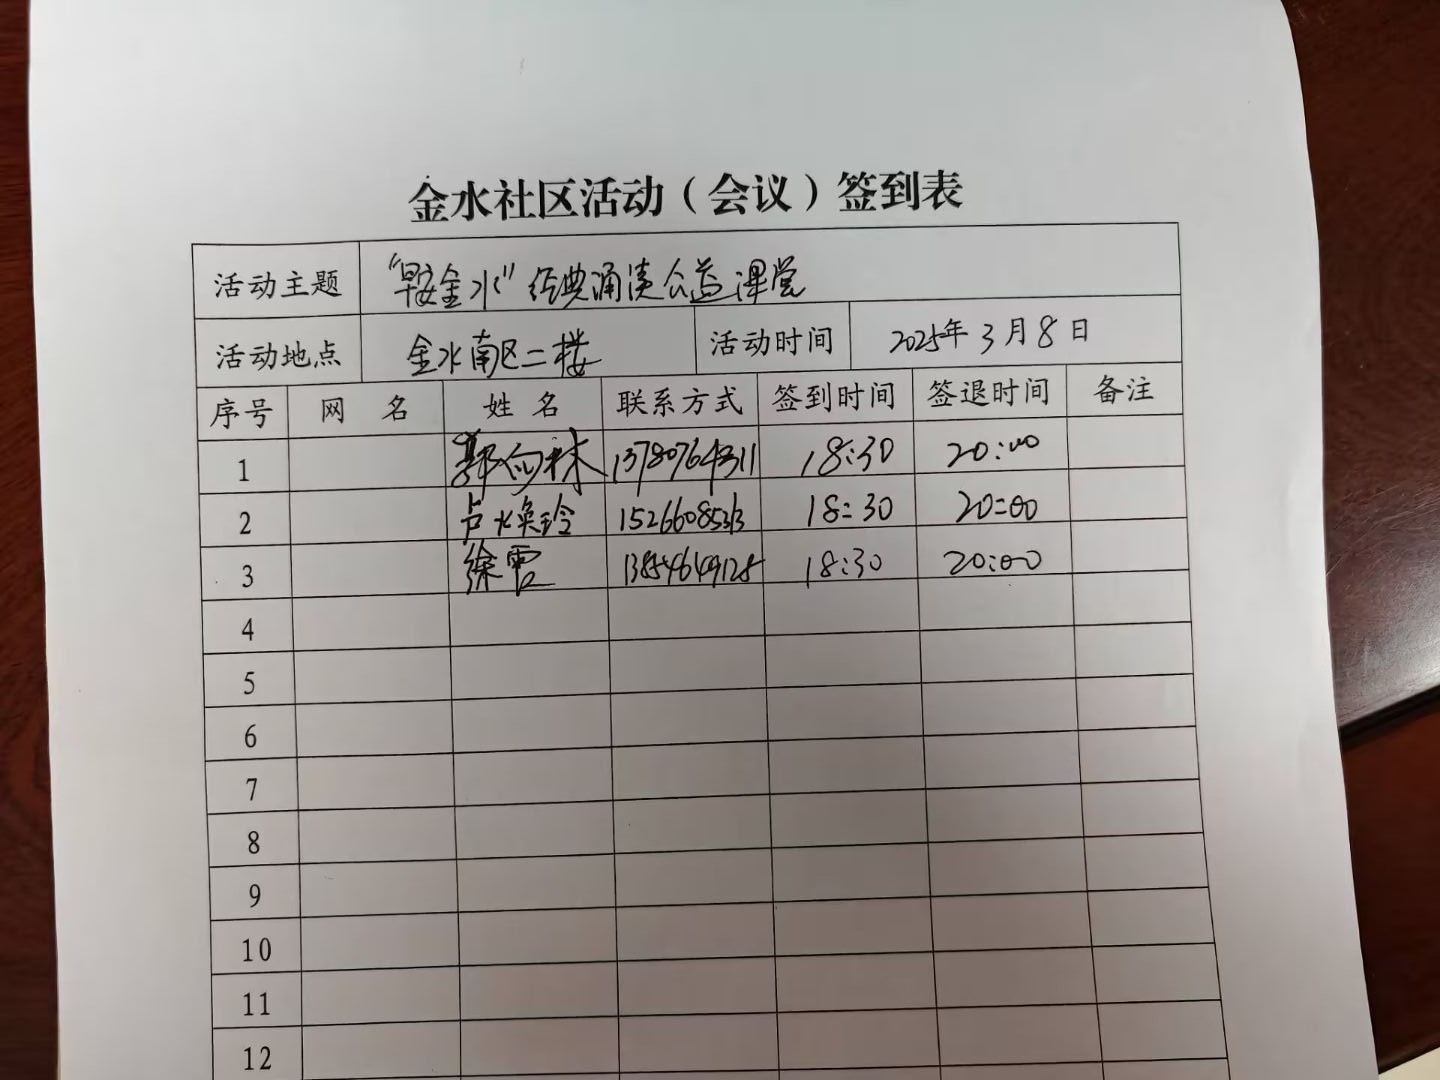 金水社区活动（会议）签到表
活动主题 “早安金水”经典诵读公益课堂
活动地点 金水南区二楼 活动时间 2025年3月8日
序号 网 名 姓 名 联系方式 签到时间 签退时间 备注
1 郭向林 13780764311 18:30 20:00
2 卢水焕玲 18:30 20:00
3 徐霞 13854649128 18:30 20:00
4
5
6
7
8
9
10
11
12